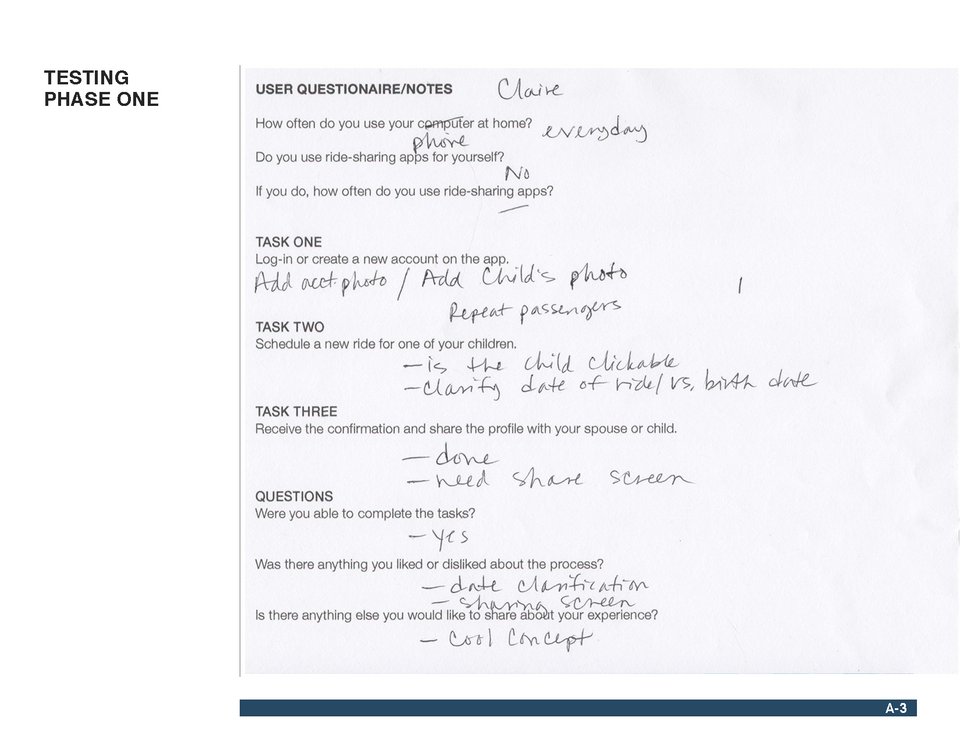 TESTING
PHASE ONE
USER QUESTIONAIRE/NOTES Claire
How often do you use your computer at home? everyday
phone
Do you use ride-sharing apps for yourself?
No
If you do, how often do you use ride-sharing apps?
—
TASK ONE
Log-in or create a new account on the app.
Add acct. photo / Add Child's photo
Repeat passengers
TASK TWO
Schedule a new ride for one of your children.
— is the child clickable
— clarify date of ride/ vs. birth date
TASK THREE
Receive the confirmation and share the profile with your spouse or child.
— done
— need share screen
QUESTIONS
Were you able to complete the tasks?
— yes
Was there anything you liked or disliked about the process?
— date clarification
— sharing screen
Is there anything else you would like to share about your experience?
— Cool Concept
A-3